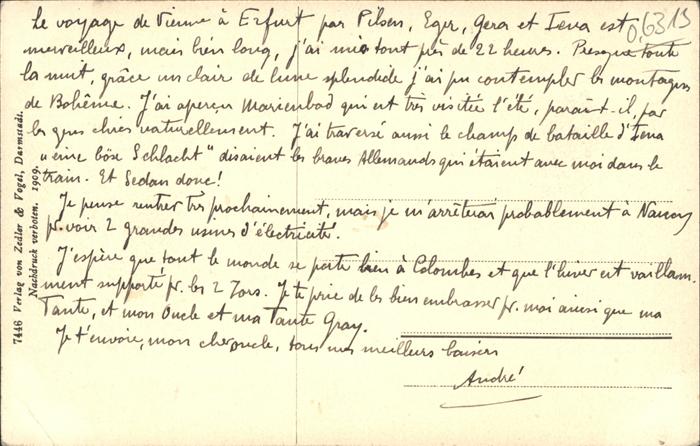 Le voyage de Vienne à Erfurt par Pilsen, Eger, Gera et Iena est
merveilleux, mais bien long, j'ai mis tout près de 22 heures. Presque toute
la nuit, grâce un clair de lune splendide j'ai pu contempler les montagnes
de Bohême. J'ai aperçu Marienbad qui est très visitée l'été, paraît-il, par
les gens chics naturellement. J'ai traversé aussi le champ de bataille d'Iena
"eine böse Schlacht" disaient les braves Allemands qui étaient avec moi dans le
train. Et Sedan donc!
Je pense rentrer très prochainement, mais je m'arrêterai probablement à Nancy
pr. voir 2 grandes usines d'électricité.
J'espère que tout le monde se porte bien à Colombes et que l'hiver est vaillam-
ment supporté pr. les 2 Tors. Je te prie de les bien embrasser pr. moi ainsi que ma
Tante, et mon Oncle et ma Tante Gray.
Je t'envoie, mon cher oncle, tous mes meilleurs baisers
André
0,63 15
7446 Verlag von Zedler & Vogel, Darmstadt.
Nachdruck verboten. 1909.